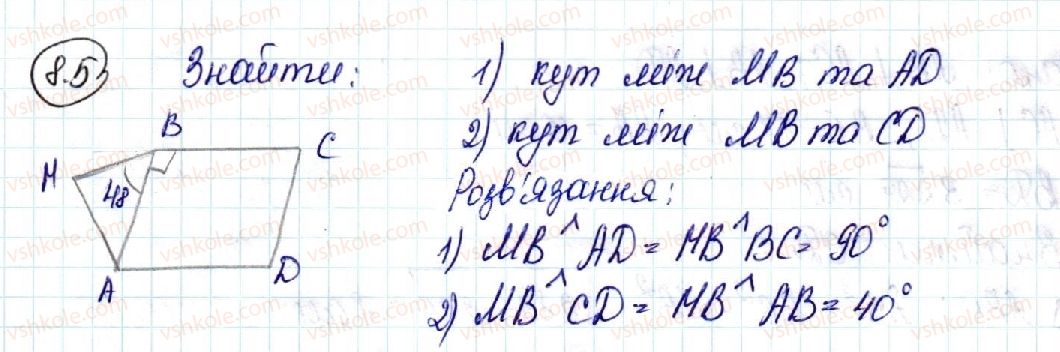 8.5
Знайти: 1) кут між MB та AD
2) кут між MB та CD
Розв'язання:
1) MB^AD = MB^BC = 90°
2) MB^CD = MB^AB = 40°
B
C
M
48
A
D
vshkole.com